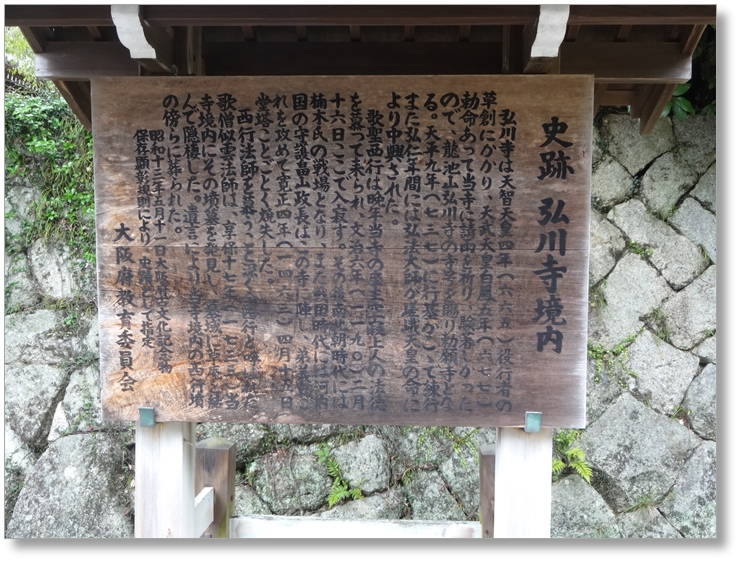 史跡 弘川寺境内
弘川寺は天智天皇四年(六六五)役行者の
草創にかかり、天武天皇白鳳五年(六七七)
勅命あって当寺に請雨を祈り、験著しかった
ので、龍池山弘川寺の寺号を賜り勅願寺とな
る。天平九年(七三七)に行基がここで練行
また弘仁年間には弘法大師が嵯峨天皇の命に
より中興された。
歌聖西行は晩年当寺の座主空寂上人の法徳
を慕って来られ、文治六年(一一九〇)二月
十六日ここで入寂す。その後南北朝時代には
楠木氏の戦場となり、また戦国時代には河内
国の守護畠山政長はこの寺に陣し、弟義就こ
れを攻めて寛正四年(一四六三)四月十五日
堂塔ことごとく煩失した。
西行法師を慕うこと深く今西行と呼ばれた
歌僧似雲法師は、享保十七年(一七三二)当
寺境内にその墳墓を発見し、墓域に草庵を結
んで隠棲した。遺言により当寺境内の西行墳
の傍らに葬られた。
昭和十三年五月十一日大阪府古文化記念物
保存顕彰規則により史跡として指定
大阪府教育委員会